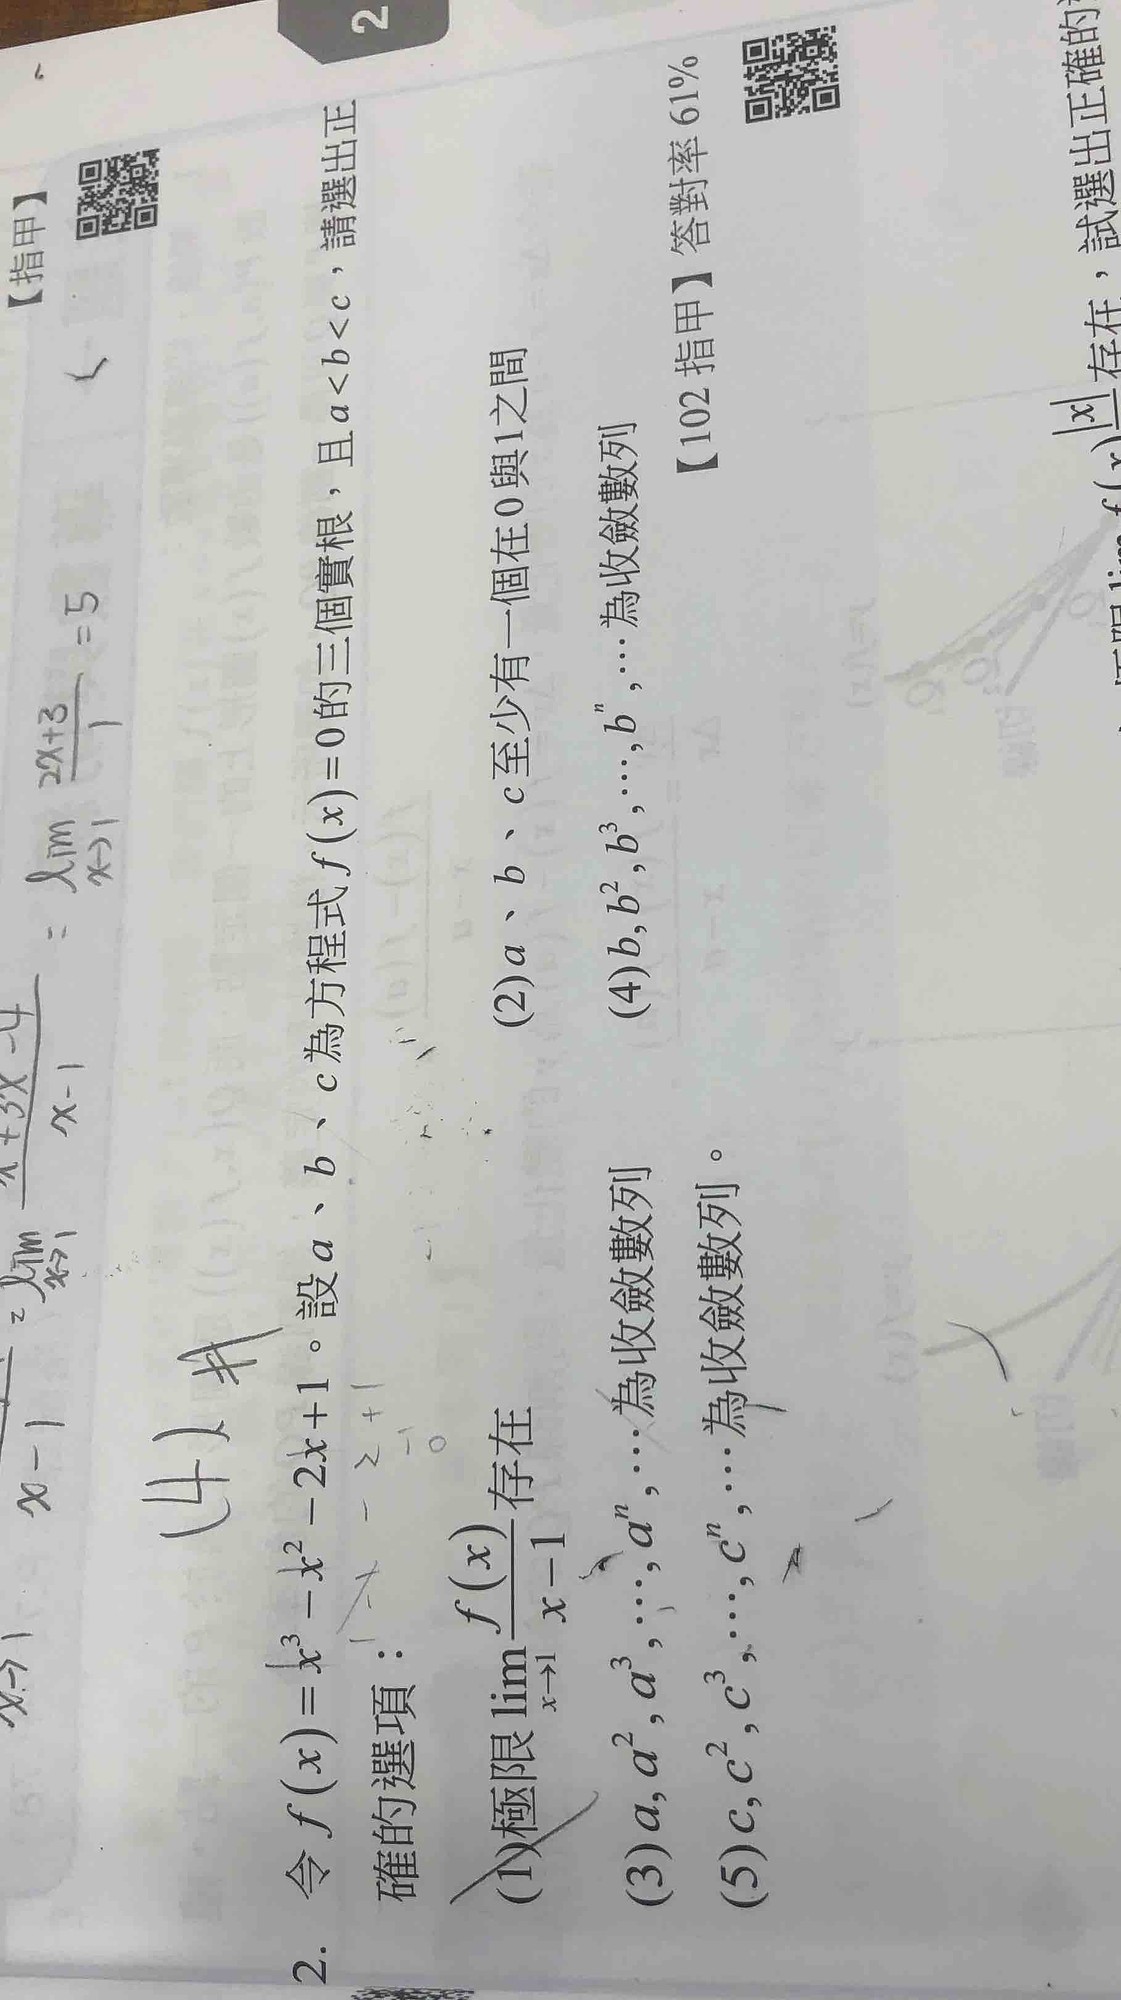 2
【指甲】
x→1
x-1
=
lim
x→1
+3x-4
x-1
=
lim
x→1
2x+3
1
=5
(4)
2. 令f(x)=x³-x²-2x+1。設a、b、c為方程式f(x)=0的三個實根，且a<b<c，請選出正
確的選項：
(1)極限lim x→1 f(x)/x-1 存在
(2)a、b、c至少有一個在0與1之間
(3)a,a²,a³,…,aⁿ,…為收斂數列
(4)b,b²,b³,…,bⁿ,…為收斂數列
(5)c,c²,c³,…,cⁿ,…為收斂數列。
【102指甲】答對率61%
|x|
存在，試選出正確的